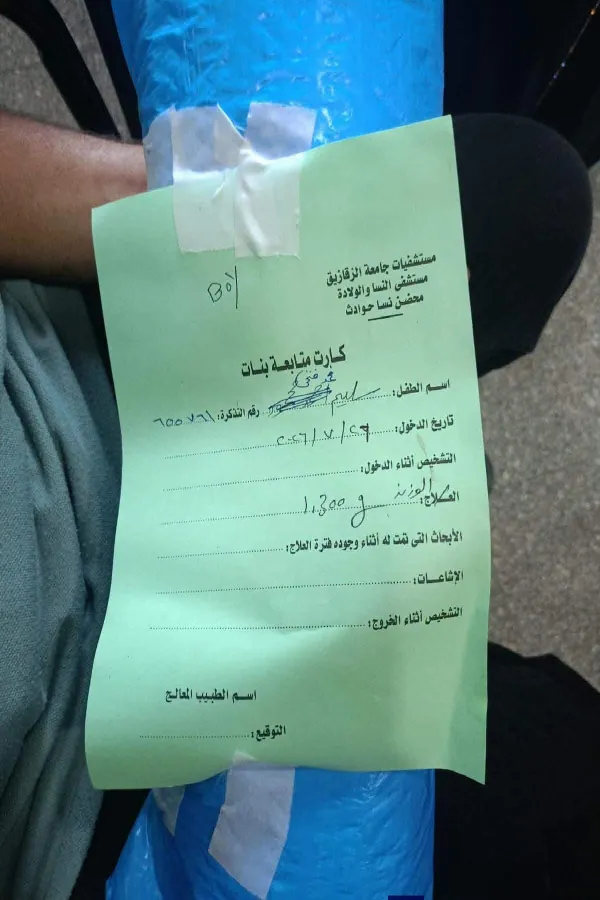 مستشفيات جامعة الزقازيق
مستشفى النسا والولادة
محضن نسا حوادث
Boy
كارت متابعة بنات
اسم الطفل: سليم رقم التذكرة: ٦٥٥٧٦١
تاريخ الدخول: ٢٠٢٦/٧/٢٦
التشخيص أثناء الدخول:
العلاج: الوزن 1,300 g
الأبحاث التى تمت له أثناء وجوده فترة العلاج:
الإشاعات:
التشخيص أثناء الخروج:
اسم الطبيب المعالج
التوقيع: